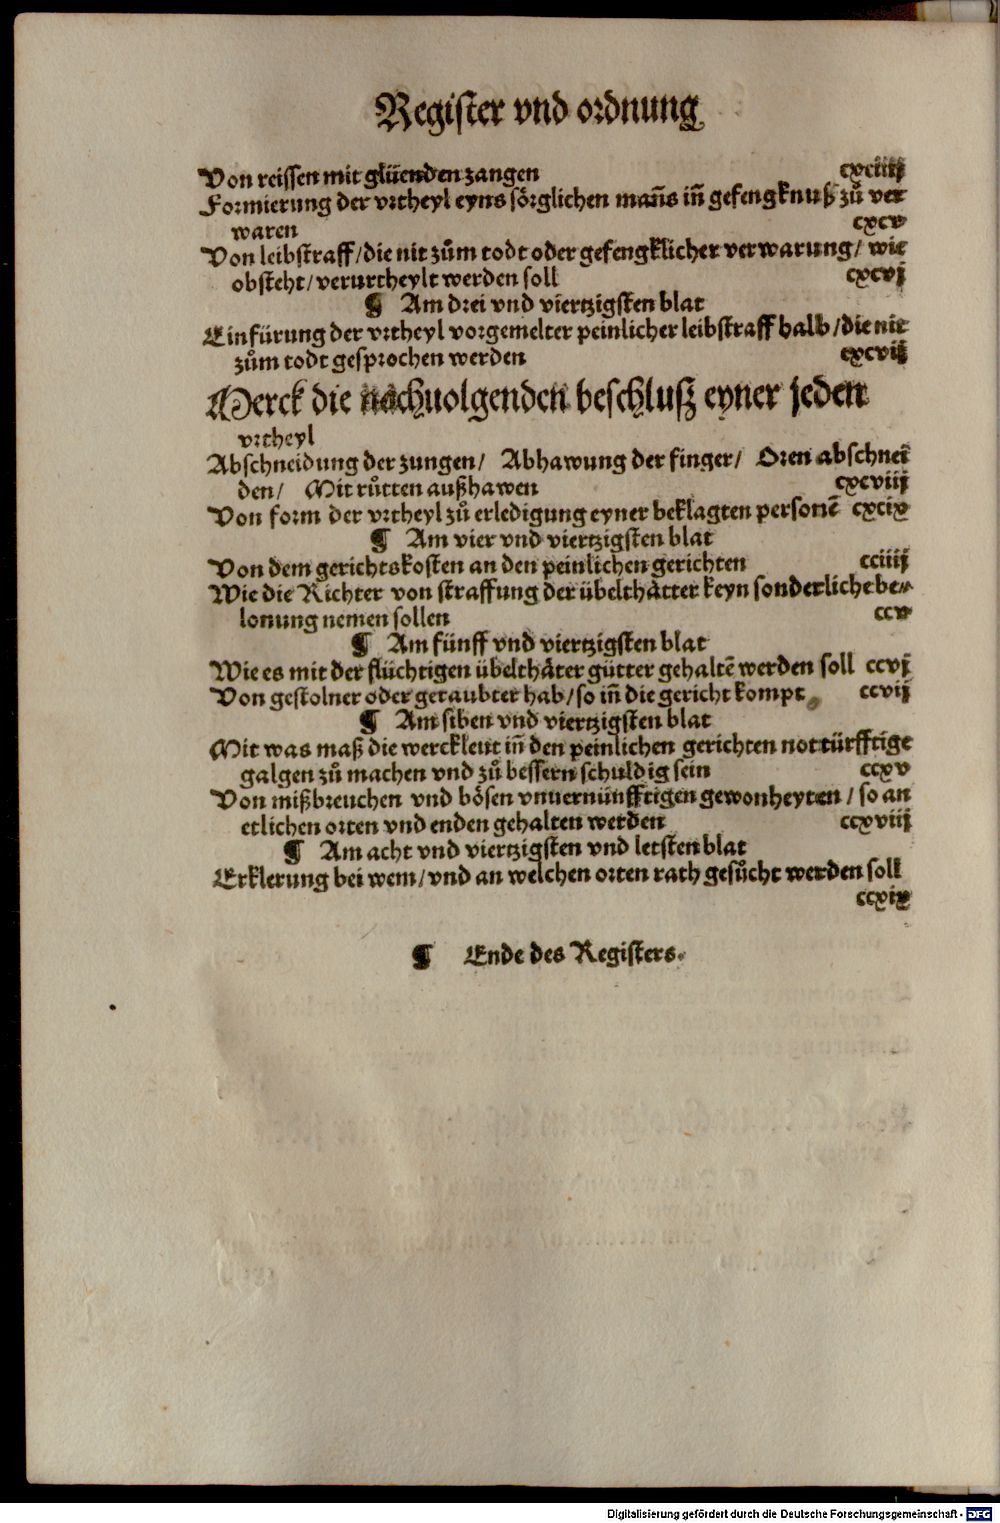 Register vnd ordnung
Von reissen mit glüenden zangen cxciiij
Formierung der vrtheyl eyns sörglichen mañs iñ gefengknuß zů ver
waren cxcv
Von leibstraff/die nit zům todt oder gefengklicher verwarung/ wie
obsteht/verurtheylt werden soll cxcvj
¶ Am drei vnd viertzigsten blat
Einfürung der vrtheyl vorgemelter peinlicher leibstraff halb/die nit
zům todt gesprochen werden cxcvij
Merck die nachuolgenden beschlusz eyner jeden
vrtheyl
Abschneidung der zungen/ Abhawung der finger/ Oren abschnei
den/ Mit růtten außhawen cxcviij
Von form der vrtheyl zů erledigung eyner beklagten personē cxcix
¶ Am vier vnd viertzigsten blat
Von dem gerichtskosten an den peinlichen gerichten cciiij
Wie die Richter von straffung der übelthätter keyn sonderliche be-
lonung nemen sollen ccv
¶ Am fünff vnd viertzigsten blat
Wie es mit der flüchtigen übelthäter gütter gehaltē werden soll ccvj
Von gestolner oder geraubter hab/so iñ die gericht kompt ccvij
¶ Am siben vnd viertzigsten blat
Mit was maß die werckleut iñ den peinlichen gerichten nottürfftige
galgen zů machen vnd zů bessern schuldig sein ccxv
Von mißbreuchen vnd bösen vnuernünfftigen gewonheyten/so an
etlichen orten vnd enden gehalten werden ccxviij
¶ Am acht vnd viertzigsten vnd letsten blat
Erklerung bei wem/vnd an welchen orten rath gesůcht werden soll
ccxix
¶ Ende des Registers.
Digitalisierung gefördert durch die Deutsche Forschungsgemeinschaft - DFG